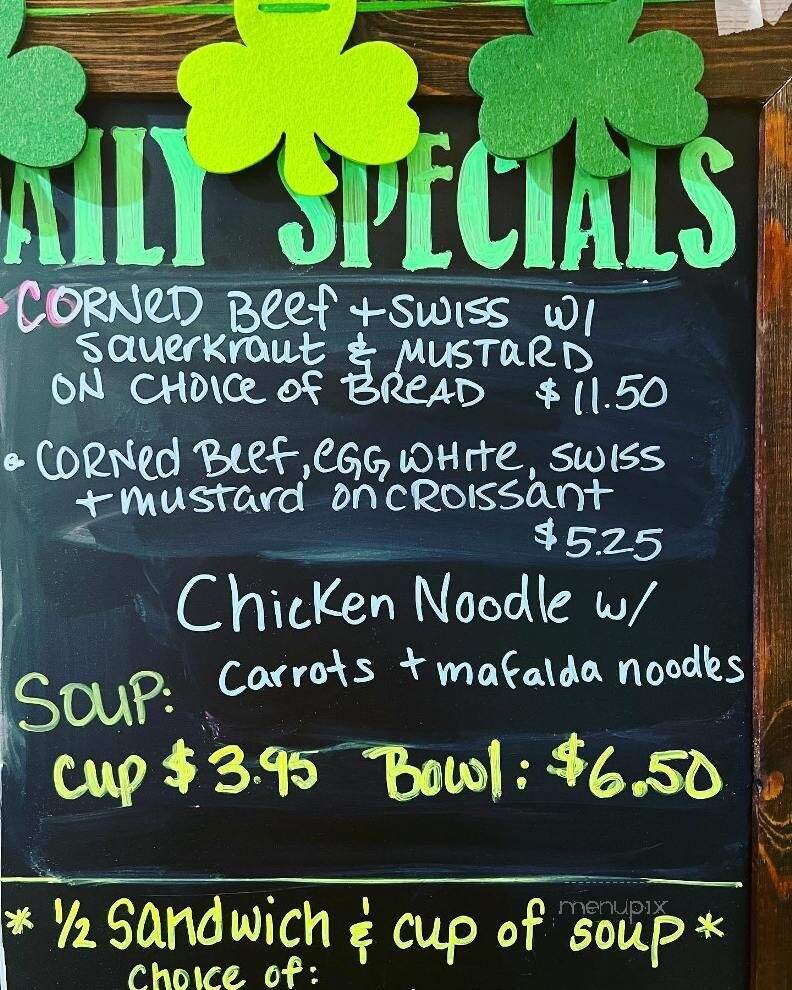 AILY SPECIALS
• CORNED Beef + SWISS w/
sauerkraut & MUSTARD
ON CHOICE of BREAD $11.50
• CORNed Beef, eGG WHITE, SWISS
+ mustard on CROISSANT
$5.25
Chicken Noodle w/
Carrots + mafalda noodles
SOUP:
Cup $3.95 Bowl: $6.50
menupix
* 1/2 Sandwich & cup of soup *
choice of: